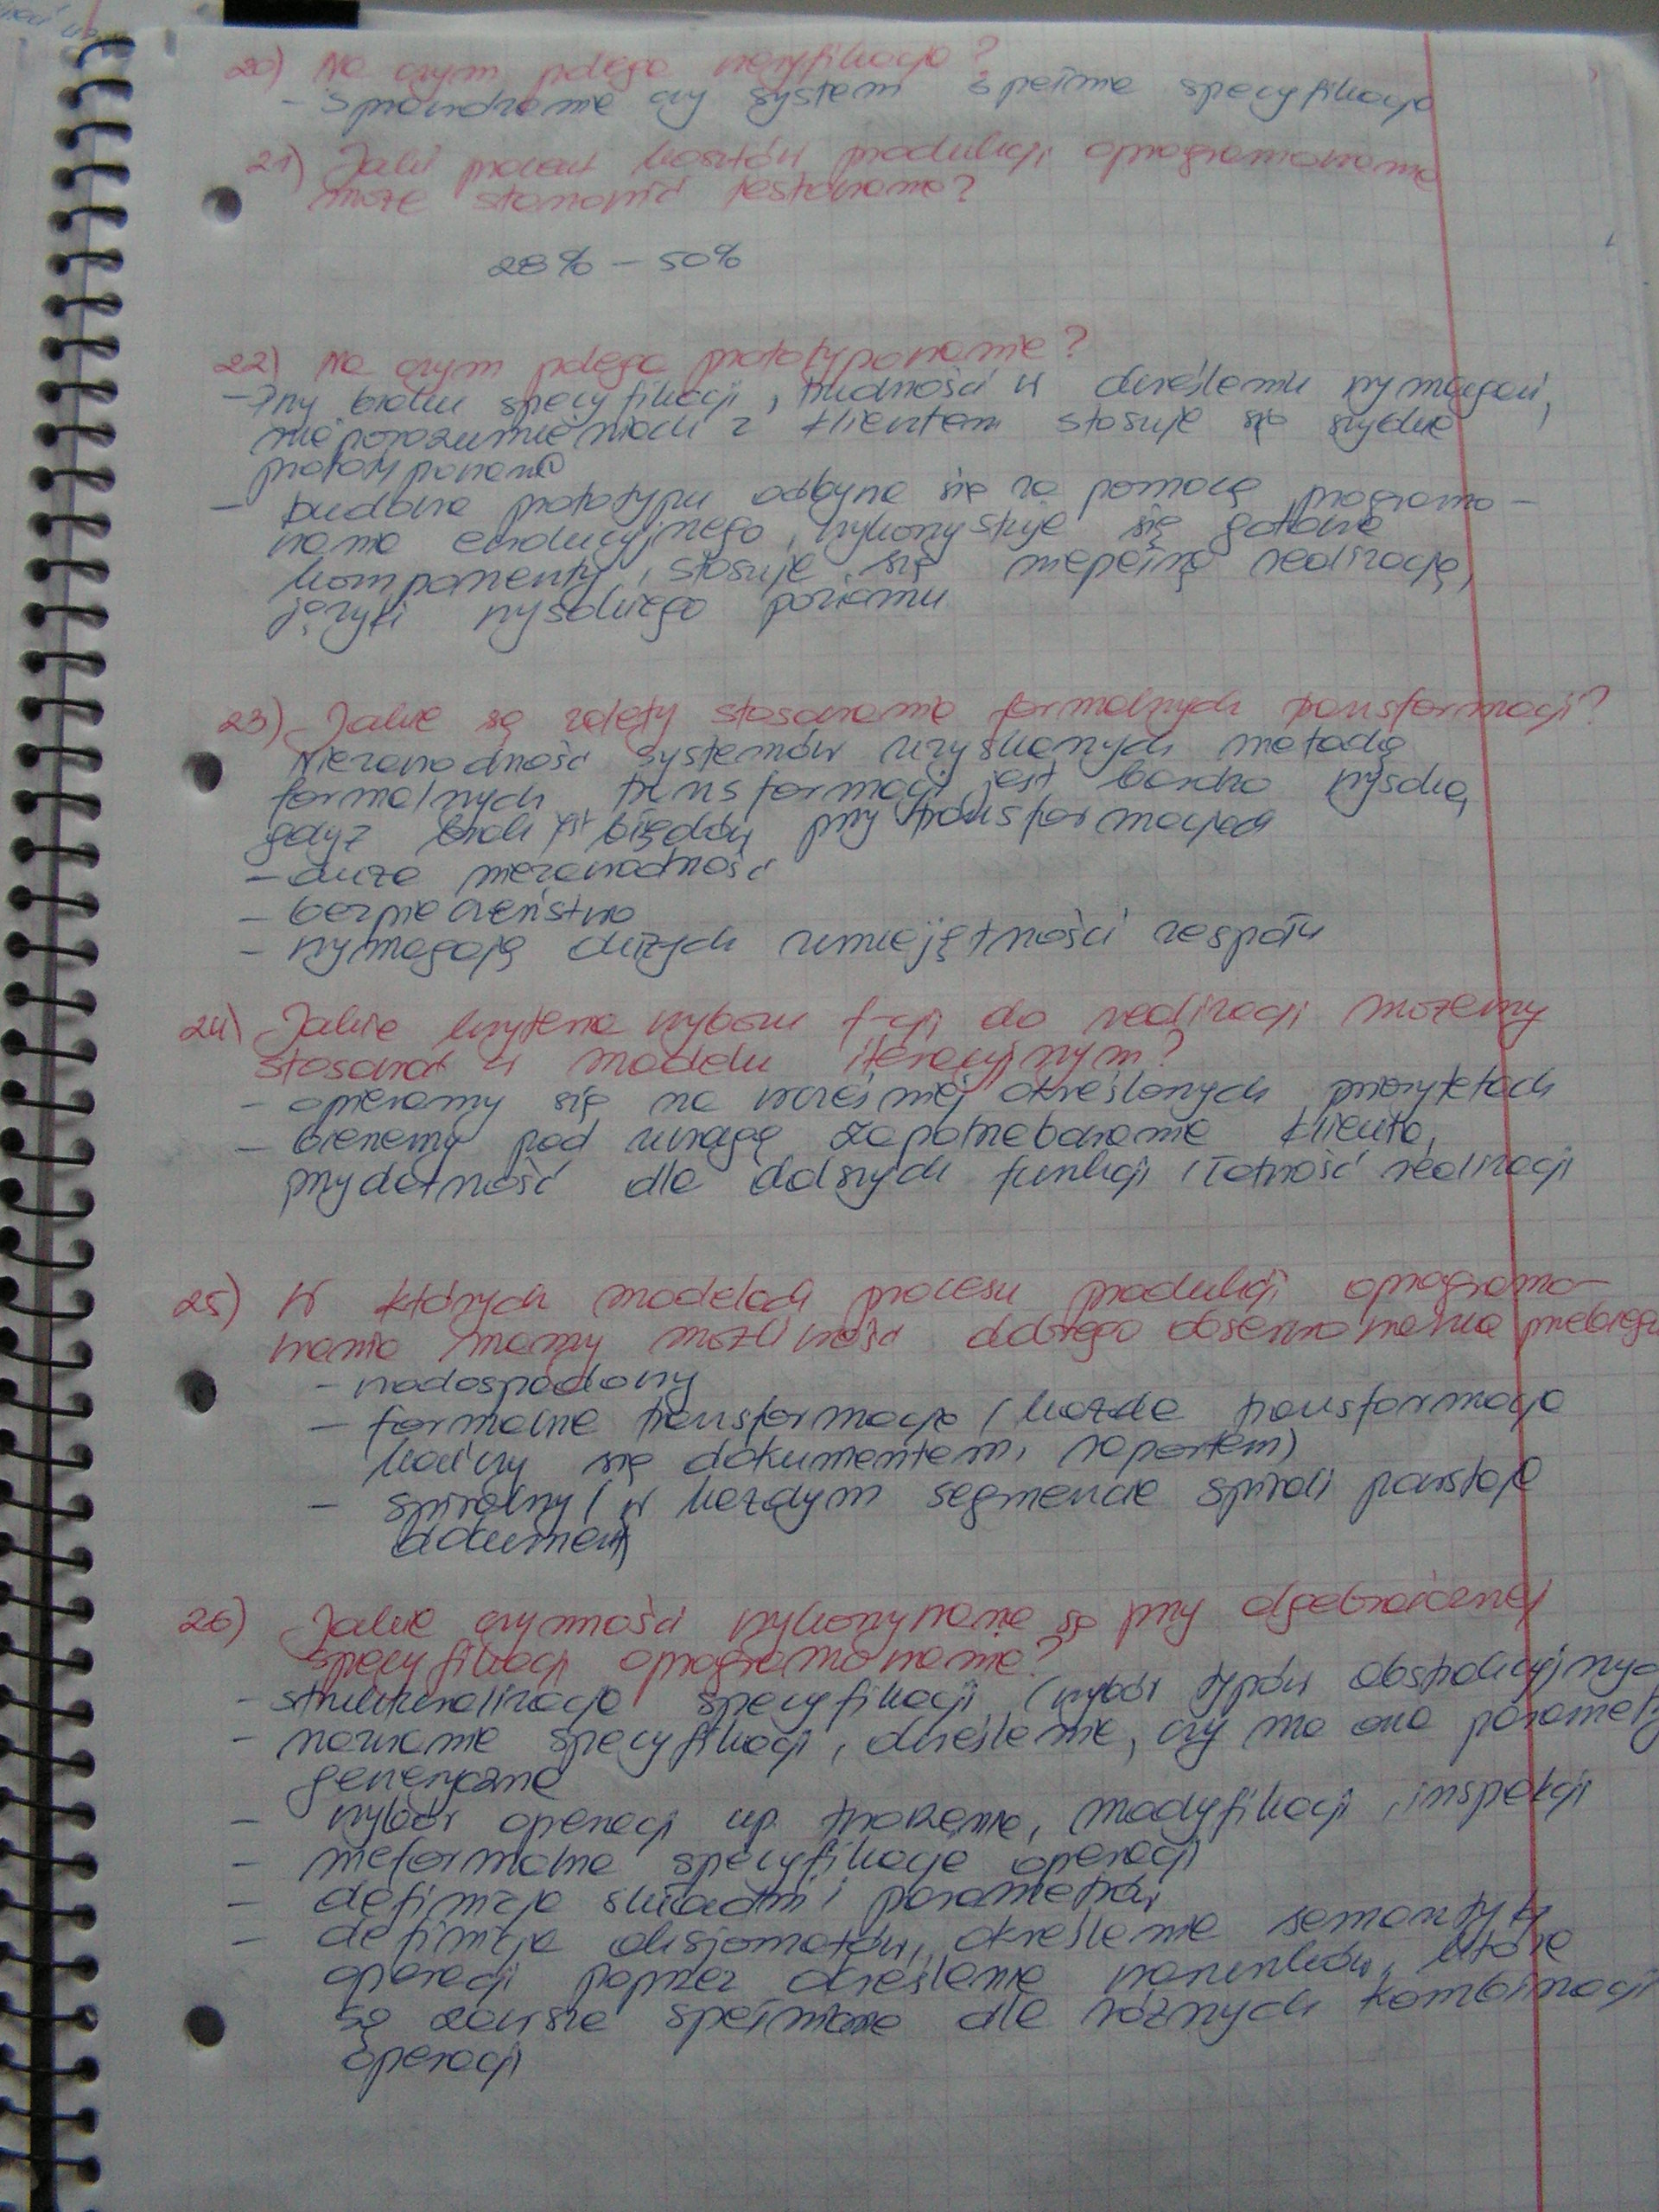 20) Na czym polega weryfikacja?
- Sprawdzenie czy system spełnia specyfikację
21) Jaki procent kosztów produkcji oprogramowania
może stanowić testowanie?
28% - 50%
22) Na czym polega prototypowanie?
- Przy braku specyfikacji, trudności w określeniu wymagań,
nieporozumieniach z klientem stosuje się szybkie
prototypowanie
- budowa prototypu odbywa się za pomocą programo-
wania ewolucyjnego, wykorzystuje się gotowe
komponenty, stosuje się niepełną realizację,
języki wysokiego poziomu
23) Jakie są zalety stosowania formalnych transformacji?
Niezawodność systemów uzyskanych metodą
formalnych transformacji jest bardzo wysoka,
gdyż brak jest błędów przy transformacjach
- duża niezawodność
- bezpieczeństwo
- wymagają dużych umiejętności zespołu
24) Jakie kryteria wyboru f-cji do realizacji możemy
stosować w modelu iteracyjnym?
- opieramy się na wcześniej określonych priorytetach
- bierzemy pod uwagę zapotrzebowanie klienta,
przydatność dla dalszych funkcji, łatwość realizacji
25) W których modelach procesu produkcji oprogramo-
wania mamy możliwość dobrego obserwowania przebiegu
- wodospadowy
- formalne transformacje (każda transformacja
kończy się dokumentem, raportem)
- spiralny (w każdym segmencie spirali powstaje
dokument)
26) Jakie czynności wykonywane są przy algebraicznej
specyfikacji oprogramowania?
- strukturalizacja specyfikacji (wybór typów abstrakcyjnyc
- nazwanie specyfikacji, określenie, czy ma ona parametry
generyczne
- wybór operacji np. tworzenie, modyfikacji, inspekcji
- nieformalna specyfikacja operacji
- definicja składni i parametrów
- definicja aksjomatów, określenie semantyki
operacji poprzez określenie warunków, które
są zawsze spełniane dla różnych kombinacji
operacji